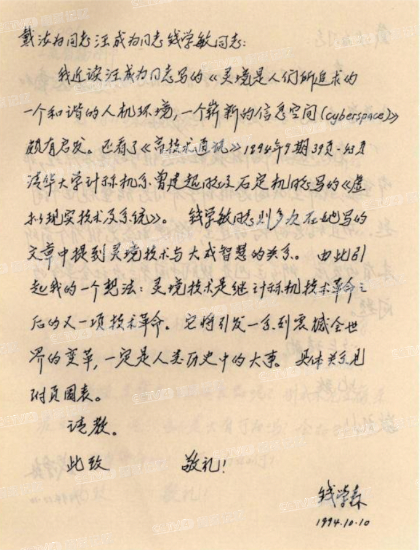 戴汝为同志汪成为同志钱学敏同志:
我近读汪成为同志写的《灵境是人们所追求的
一个和谐的人机环境,一个崭新的信息空间(cyberspace)》
颇有启发。还看了《高技术通讯》1994年9期39页-43页
清华大学计算机系曾建超以及石定机写的《虚
拟现实技术及系统》。钱学敏则多次在她写的
文章中提到灵境技术与大成智慧的关系。由此引
起我的一个想法:灵境技术是继计算机技术革命之
后的又一项技术革命。它将引发一系列震撼全世
界的变革,一定是人类历史中的大事。具体关系见
附页图表。
请教。
此致 敬礼!
钱学森
1994.10.10